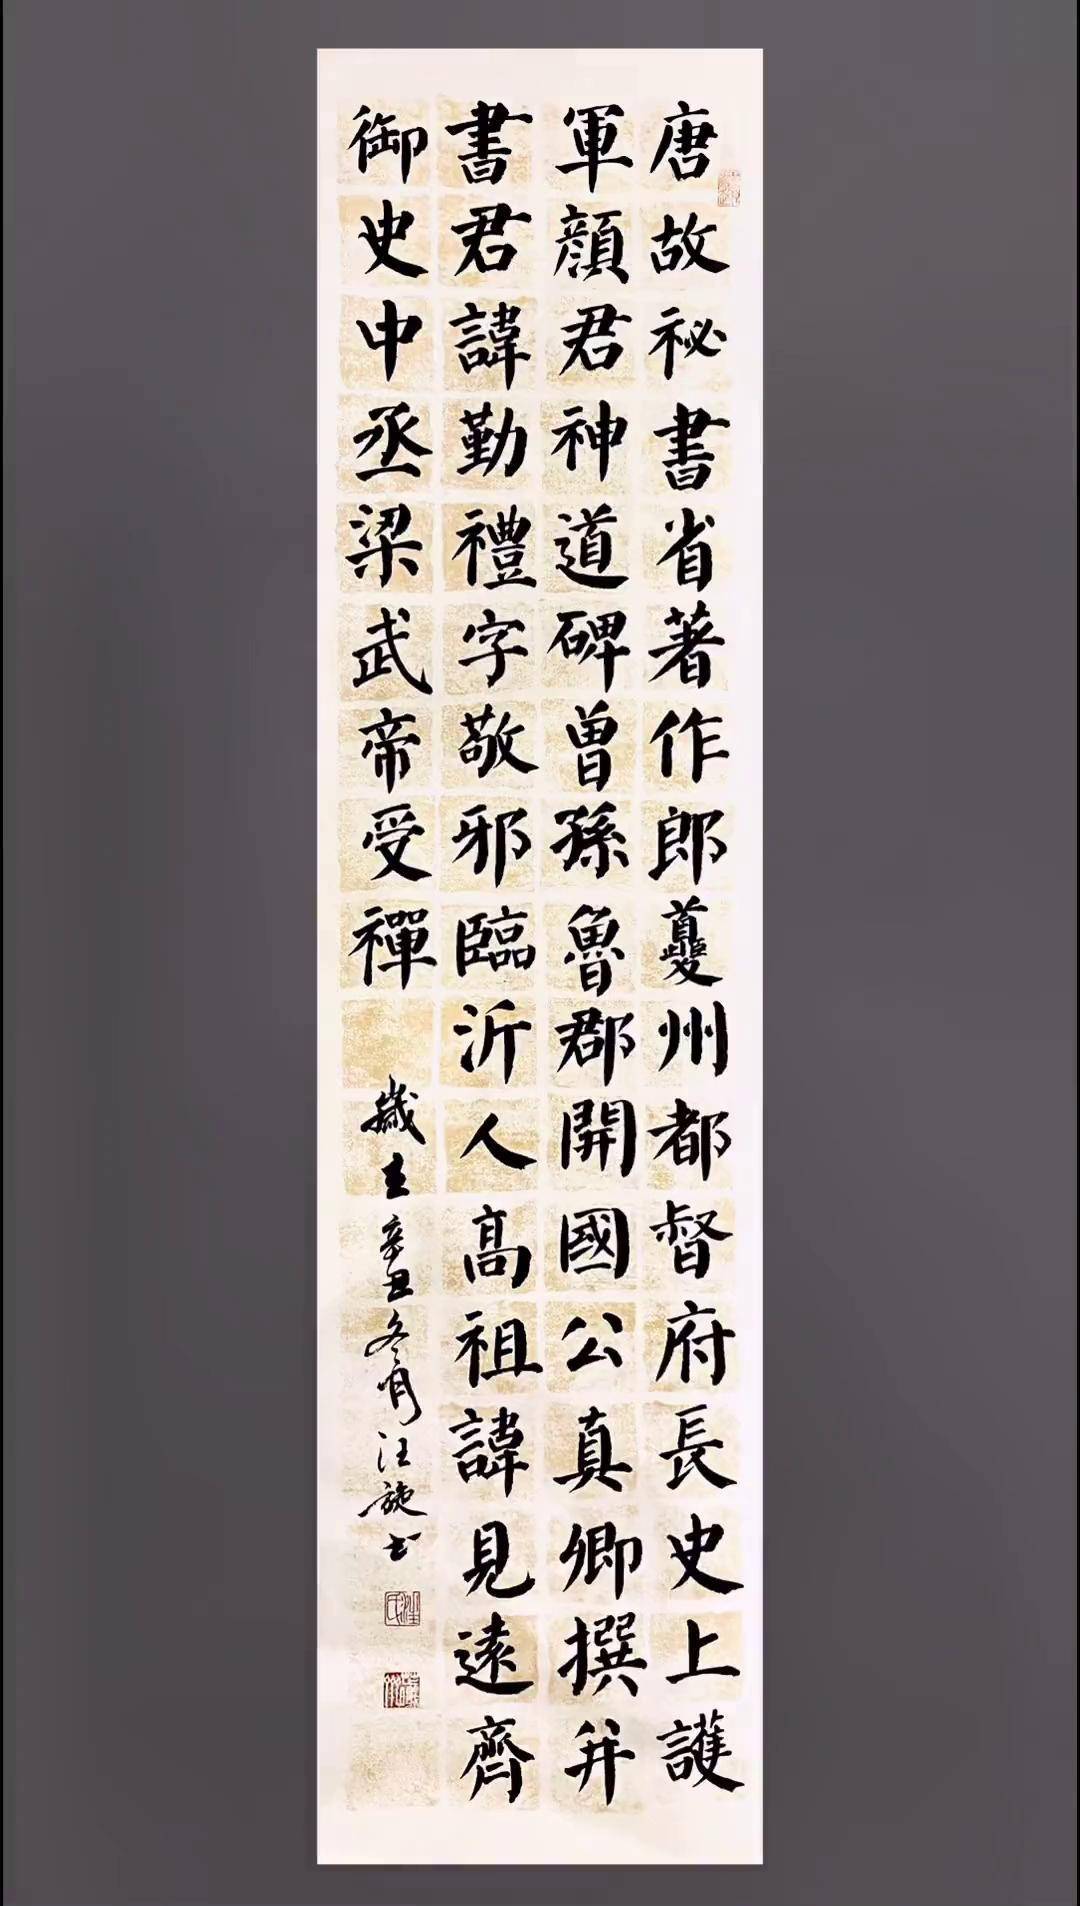 唐故祕書省著作郎夔州都督府長史上護
軍顏君神道碑曾孫魯郡開國公真卿撰并
書君諱勤禮字敬邪臨沂人高祖諱見遠齊
御史中丞梁武帝受禪
歲在辛丑冬月汪施书
汪氏